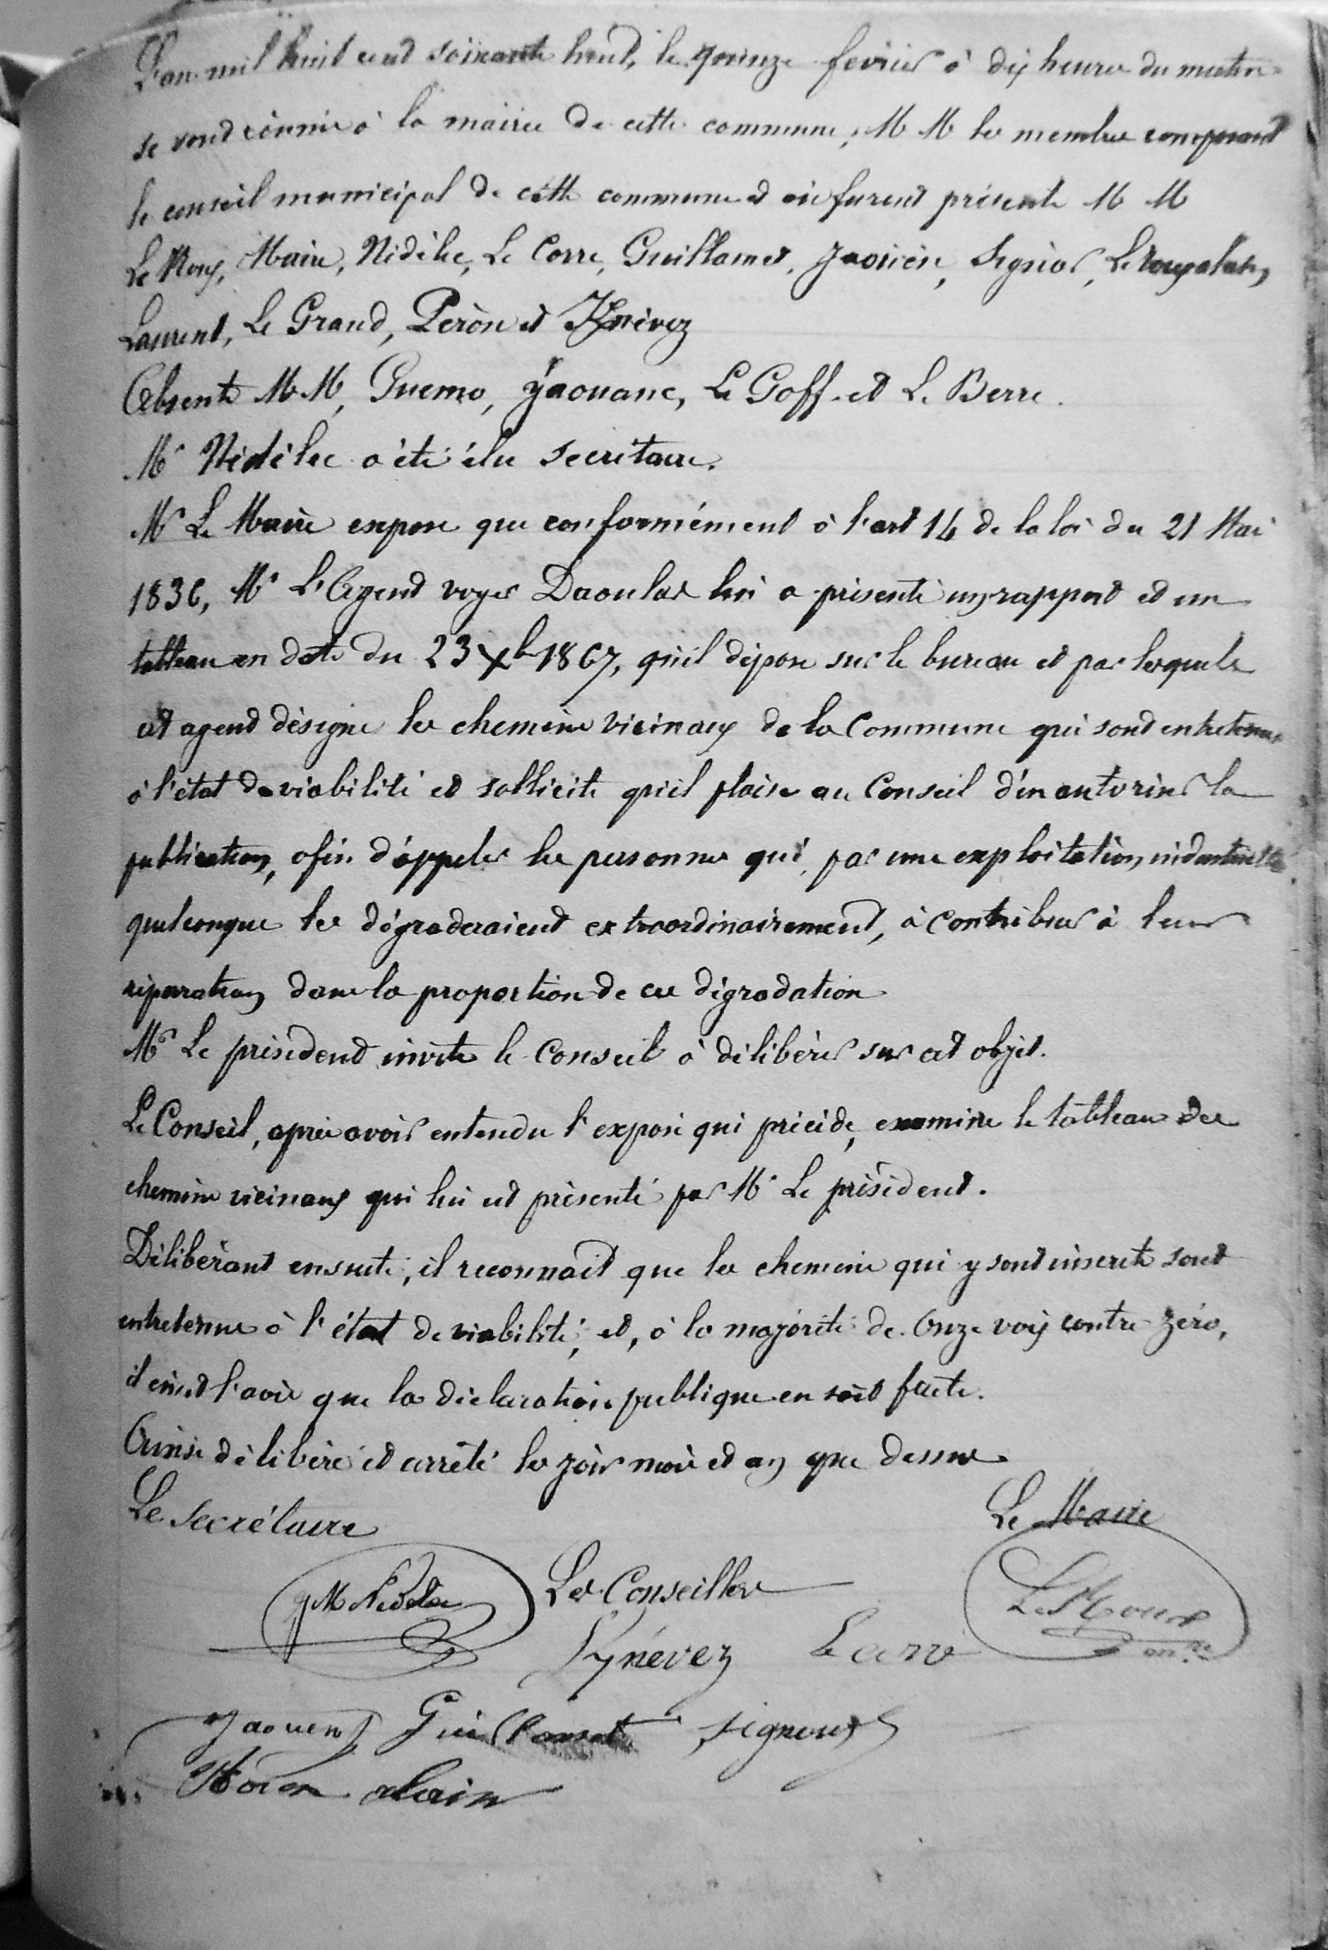 L'an mil huit cent soixante huit, le quinze février à dix heures du matin
se sont réunis à la mairie de cette commune, M M les membres composant
le conseil municipal de cette commune et où furent présents M M
Le Roux, Maire, Nédélec, Le Corre, Guillamet, Jaouen, Signor,
Laurent, Le Grand, Péron et Kynévez
Absents M M, Guemo, Yaouanc, Le Goff et Le Berre.
Mr Nédélec a été élu secrétaire.
Mr Le Maire expose que conformément à l'art 14 de la loi du 21 Mai
1836, Mr L'Agent voyer Daoulas lui a présenté un rapport et un
tableau en date du 23 Xb 1867, qu'il dépose sur le bureau et par lesquels
cet agent désigne les chemins vicinaux de la Commune qui sont entretenus
à l'état de viabilité et sollicite qu'il plaise au Conseil d'en autoriser la
publication, afin d'appeler les personnes qui, par une exploitation industrielle
quelconque les dégraderaient extraordinairement, à contribuer à leur
réparation dans la proportion de ces dégradation
Mr Le président invite le Conseil à délibérer sur cet objet.
Le Conseil, après avoir entendu l'exposé qui précède, examine le tableau des
chemins vicinaux qui lui est présenté par Mr Le président.
Délibérant ensuite, il reconnait que les chemins qui y sont inscrits sont
entretenus à l'état de viabilité, et, à la majorité de Onze voix contre zéro,
il émet l'avis que la déclaration publique en soit faite.
Ainsi délibéré et arrêté les jour mois et an que dessus
Le Secrétaire Le Maire
Les Conseillers
JM Nédélec Le Roux
Kynévez Le Corre
Jaouen Guillamet Signour
alain